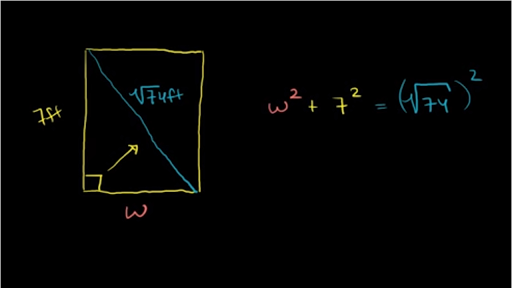 √74ft
7ft
w
w² + 7² = (√74)²